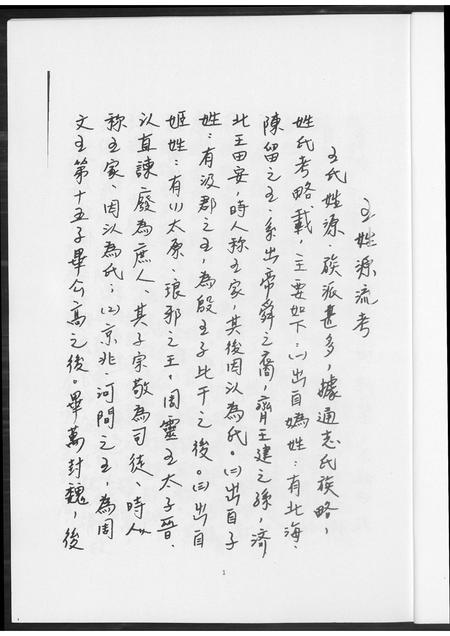 王姓源流考
王氏姓源、族派甚多，據通志氏族略，
姓氏考略載，主要如下：㈠出自媯姓：有北海、
陳留之王，系出帝舜之裔，齊王建之孫，濟
北王田安，時人称王家，其後因以為氏。㈡出自子
姓：有汲郡之王，為殷王子比干之後。㈢出自
姬姓：有⑴太原、琅邪之王，周靈王太子晉、
以直諫廢為庶人、其子宗敬為司徒、時人
称王家、因以為氏；⑵京兆、河間之王，為周
文王第十五子畢公高之後。畢萬封魏，後
1